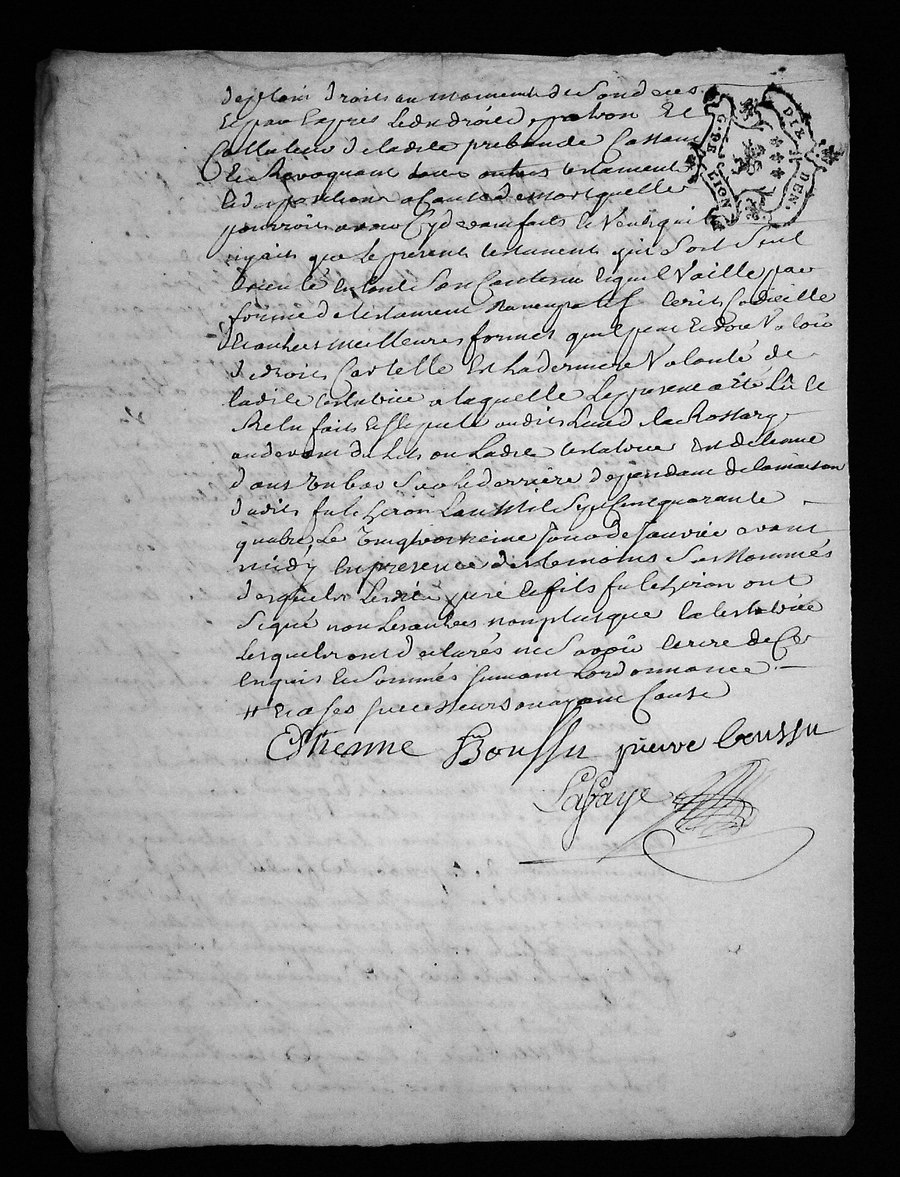 de plein droit au moment de son deces
et pour lapres ledit droit de patron et
Collateur de ladite prebande Cassant
et Revoquant tous autres testament
et dispositions a Cause de mort quelle
pourroit avoir Cydevant faits et Veut quil
nyait que le present testament qui Sort Seul
en tout Son Contenu et quil Vaille par
forme de testament Nuncupatif ecrit Codicille
et autres meilleures formes quil peut et doit Valoir
de droit Car telle Est La derniere Volonté de
ladite testatrice a laquelle Le present a été Lû et
Relu fait et audit Lieu de la
au devant du Lit ou Ladite testatrice Est detenue
dans un bas Sur le derriere dependant de la maison
dudit feu Lan Mil Sept Cent quarante
quatre, Le Jour de Janvier avant
midy en presence des temoins Sus Nommés
desquels Ledit pere et fils ont
Signé non Les autres non plus que la testatrice
Lesquels ont declarés ne Savoir Ecrire de Ce
Enquis et Sommés Suivant Lordonnance
# et a Ses Successeurs ou ayant Cause
Estienne Boussu pierre boussu
Lafaye
G. DE LION
DIX DEN.